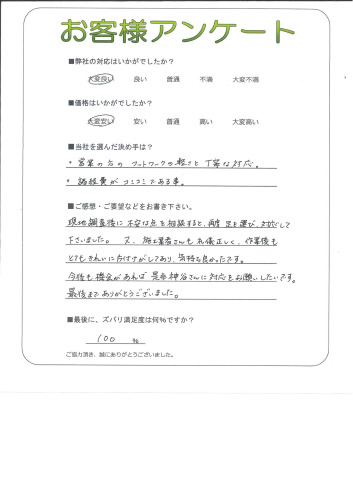 お客様アンケート
■弊社の対応はいかがでしたか？
大変良い 良い 普通 不満 大変不満
■価格はいかがでしたか？
大変安い 安い 普通 高い 大変高い
■当社を選んだ決め手は？
・営業の方のフットワークの軽さと丁寧な対応。
・諸経費がコミコミである事。
■ご感想・ご要望などをお書き下さい。
現地調査後に不安な点を相談すると、再度足を運び、対応して
下さいました。又、施工業者さんも礼儀正しく、作業後も
とてもきれいに片付けがしてあり、気持ち良かったです。
今後も機会があれば是非神谷さんに対応をお願いしたいです。
最後までありがとうございました。
■最後に、ズバリ満足度は何%ですか？
100 %
ご協力頂き、誠にありがとうございました。